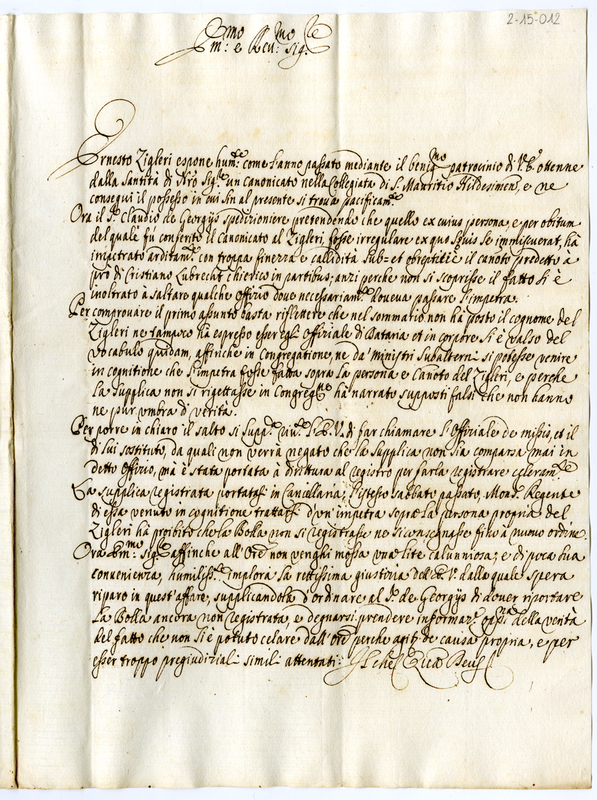 2-15-012
Em:mo e Rev:mo Sig:re
Ernesto Zigleri espone hum:te come l'anno passato mediante il benig:mo patrocinio di V. E. ottenne
dalla Santità di Nro Sig:re un Canonicato nella Collegiata di S. Mauritio Hildesimen, e ne
conseguì il possesso in cui sin al presente si trova pacificam:te
Ora il Sr. Claudio de Georgijs spedizioniere pretendendo che quello ex cuius persona, e per obitum
del quale fù conferito il Canonicato al Zigleri, fosse irregulare ex quo se immiscuerat, hà
impetrato arditam:te con troppa finezza e callidità sub- et obreptitie il canoto predetto à
prò di Cristiano Lubrecht chierico in partibus; anzi perche non si scoprisse il fatto si è
inoltrato à saltare qualche Offizio dove necessariam:te doveva passare l'impetra.
Per comprovare il primo assunto basta riflettere che nel sommario non hà posto il cognome del
Zigleri ne tampoco hà espresso esser egli Offiziale di Dataria et in corpore si è valso del
vocabulo quidam, affinche in Congregatione, ne da ministri subalterni si potesse venire
in cognitione che l'impetra fosse fatta sopra la persona e Canoto del Zigleri, e perche
la supplica non si rigettasse in Congreg:ne hà narrato supposti falsi che non hanno
ne pur umbra d'verità.
Per porre in chiaro il salto si supp:ca V. di far chiamare l'Offiziale de missis, et il
di lui sostituto, da quali non verrà negato che la supplica non sia comparsa mai in
detto Offizio, mà è stata portata à drittura al registro per farla registrare celeram:te
La supplica registrata portatasi in Cancellaria, l'istesso sabbato passato, Mons. Regente
di essa venuto in cognitione trattarsi d'un'impetra sopra la persona propria del
Zigleri hà proibito che la Bolla non si registrasse ne si consegnasse fino à nuovo ordine.
Ora Em:mo Sig:re affinche all'Ore non venghi mossa una lite calunniosa, e di poca sua
convenienza, humiliss:te implora la rettissima giustizia dell'E. V. dalla quale spera
riparo in quest'affare, supplicandola d'ordinare al Sr. de Georgijs di dover riportare
la Bolla ancora non registrata, e degnarsi prendere informaz:ne della verità
del fatto che non si è potuto celare dall'Ore perche agitur de causa propria, e per
esser troppo pregiudiziali simili attentati: